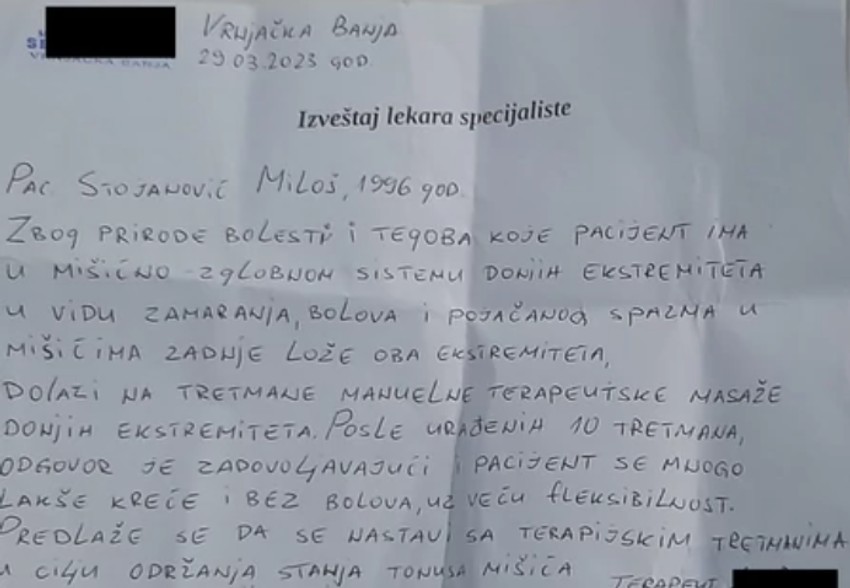 VRNJAČKA BANJA
29.03.2023 GOD.
VRNJAČKA BANJA
Izveštaj lekara specijaliste
PAC. STOJANOVIĆ MILOŠ, 1996 GOD.
ZBOG PRIRODE BOLESTI I TEGOBA KOJE PACIJENT IMA
U MIŠIĆNO-ZGLOBNOM SISTEMU DONJIH EKSTREMITETA
U VIDU ZAMARANJA, BOLOVA I POJAČANOG SPAZMA U
MIŠIĆIMA ZADNJE LOŽE OBA EKSTREMITETA,
DOLAZI NA TRETMANE MANUELNE TERAPEUTSKE MASAŽE
DONJIH EKSTREMITETA. POSLE URAĐENIH 10 TRETMANA,
ODGOVOR JE ZADOVOLJAVAJUĆI I PACIJENT SE MNOGO
LAKŠE KREĆE I BEZ BOLOVA, UZ VEĆU FLEKSIBILNOST.
PREDLAŽE SE DA SE NASTAVI SA TERAPIJSKIM TRETMANIMA
U CILJU ODRŽANJA STANJA TONUSA MIŠIĆA
TERAPEUT